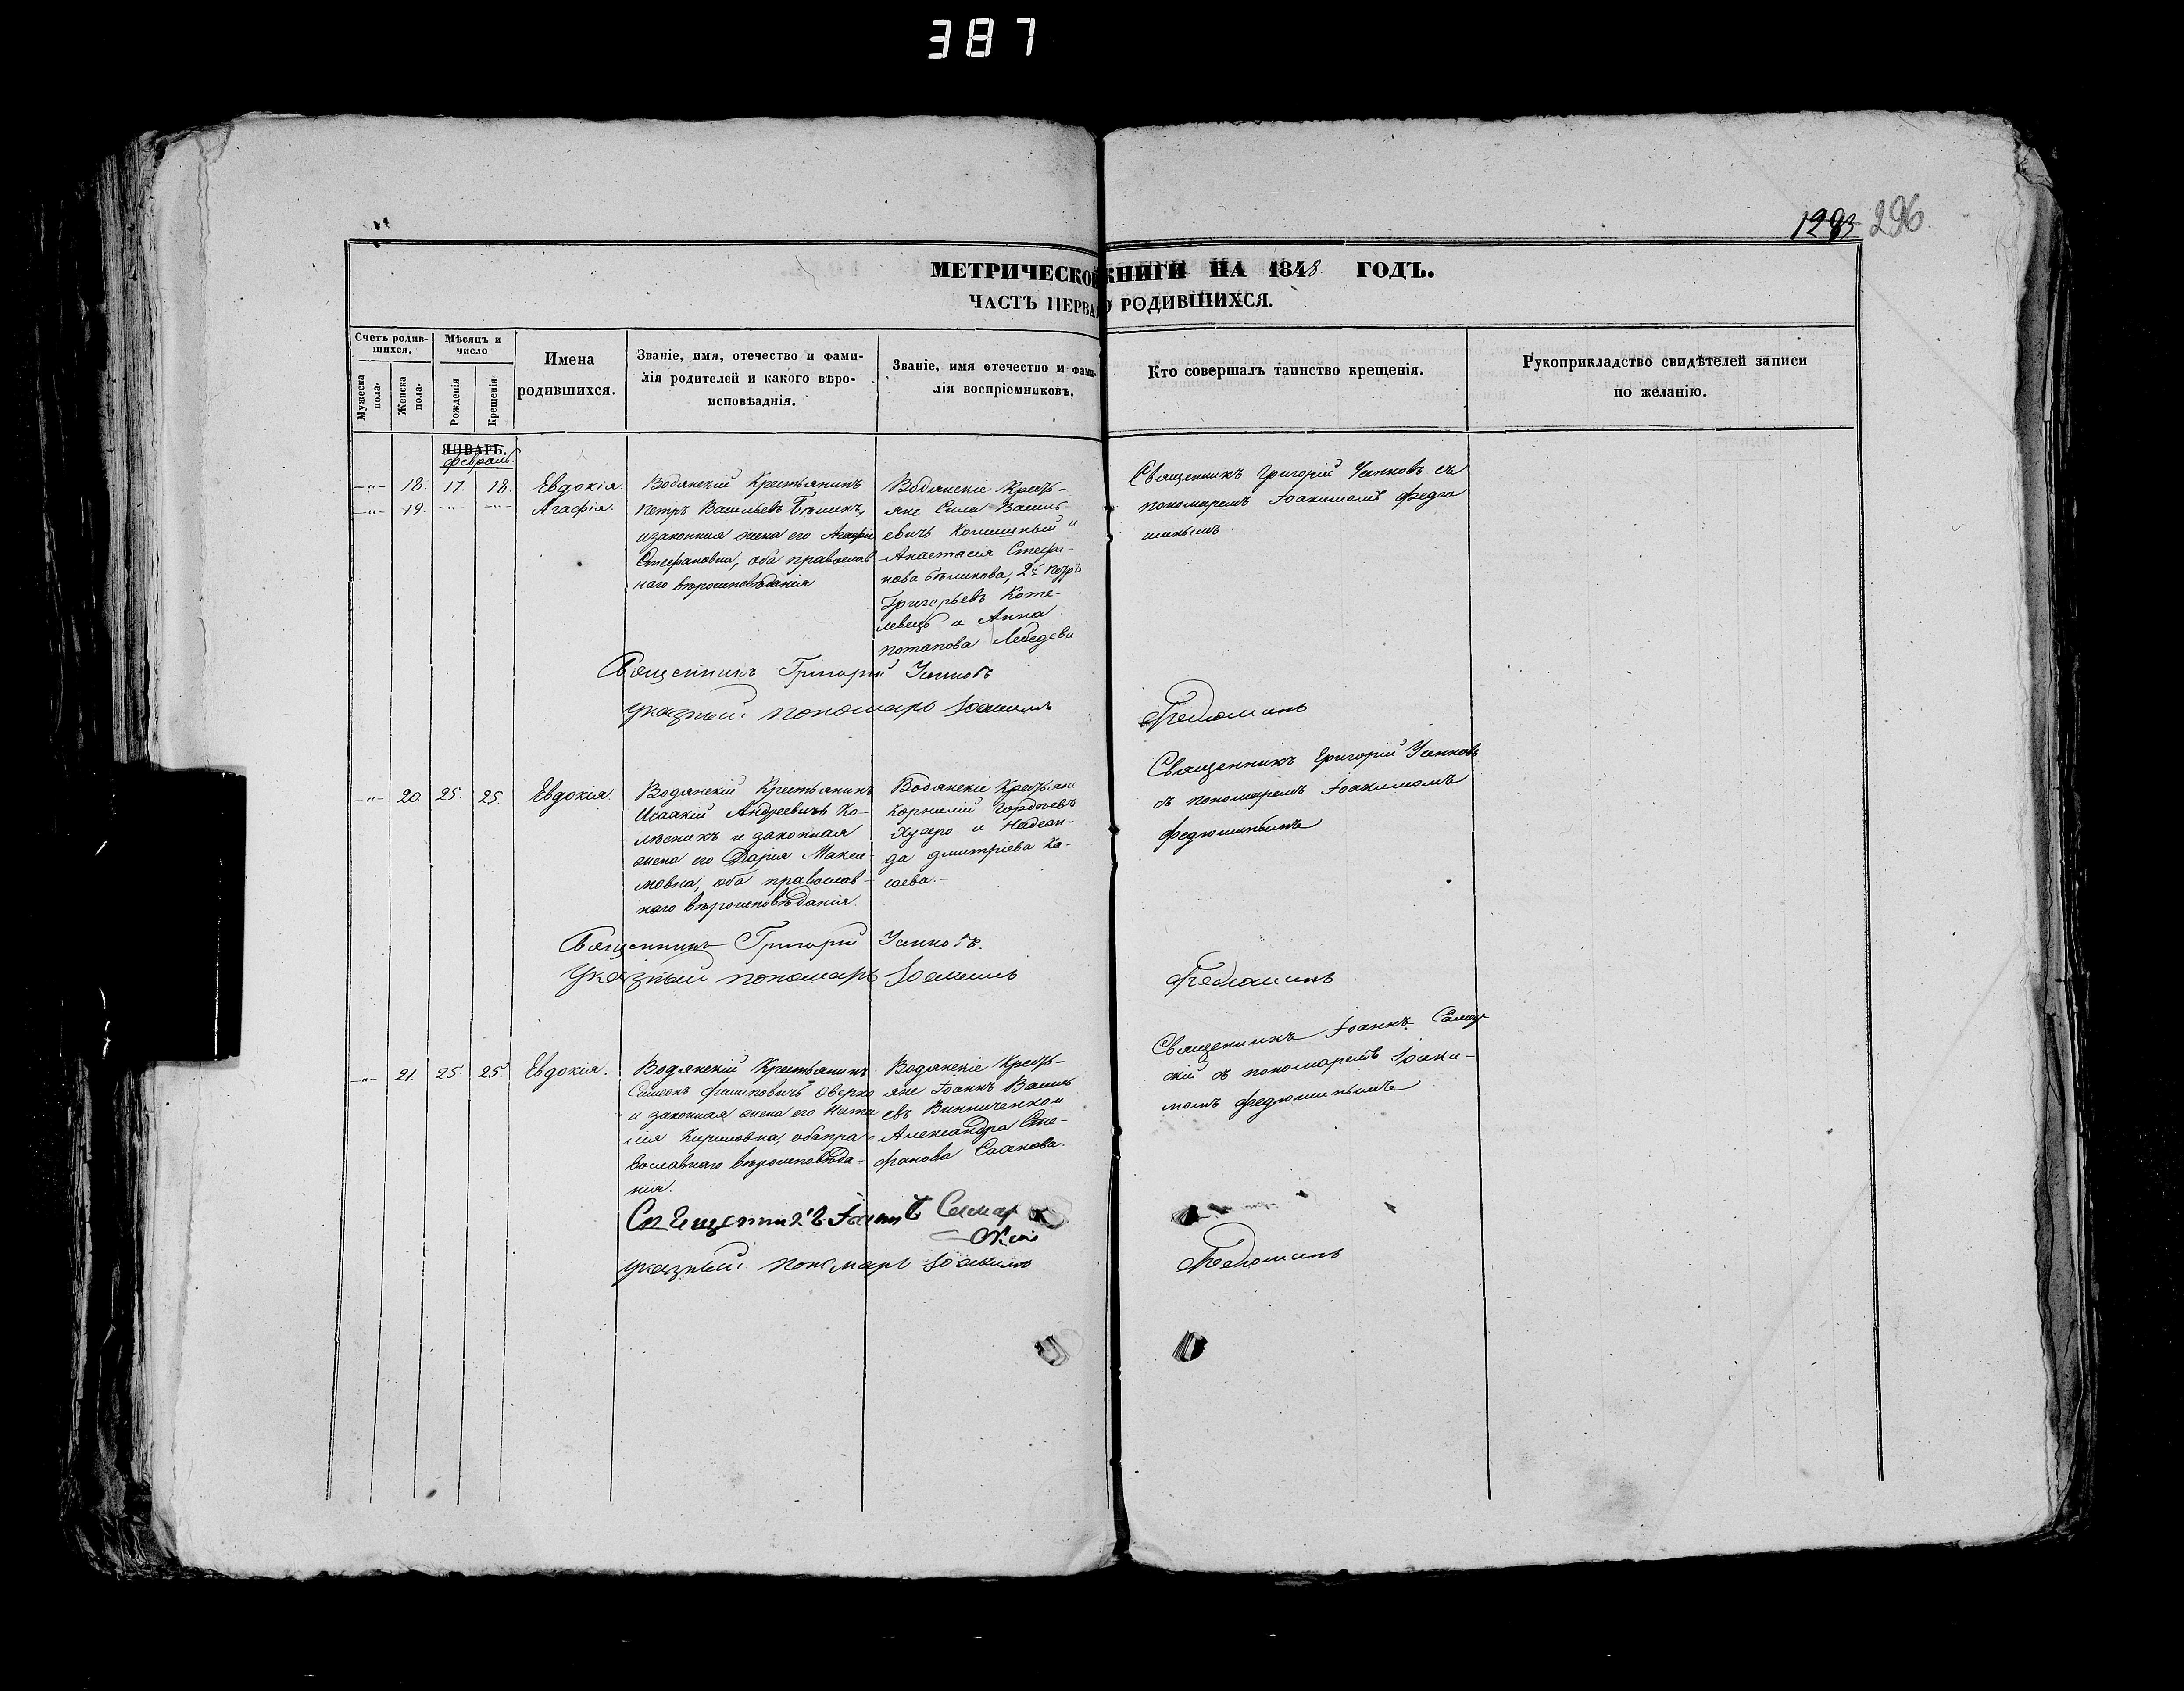 387
1293 296
МЕТРИЧЕСКОЙ КНИГИ НА 1848 ГОДЪ.
ЧАСТЬ ПЕРВАЯ О РОДИВШИХСЯ.
Счетъ родив-
шихся.
Мужеска
пола.
Женска
пола.
Мѣсяцъ и
число
Рожденія
Крещенія
Имена
родившихся.
Званіе, имя, отечество и фами-
лія родителей и какого вѣро-
исповѣаднія.
Званіе, имя отечество и фами-
лія воспріемниковъ.
Кто совершалъ таинство крещенія.
Рукоприкладство свидѣтелей записи
по желанію.
ЯНВАРЬ.
февраль.
—"— 18. 17. 18. Евдокія.
—"— 19. —"— —"— Агафія.
Водянскій Крестьянинъ
Петръ Васильевъ
изаконная жена его
Стефановна, оба православ
наго вѣроисповѣданія
Водянскіе Кресть-
яне Сила Василь
евичъ и
Анастасія Стефа-
нова 2й Петръ
Григорьевъ Коте-
левецъ и Анна
Потапова Лебедева
Священникъ Григорій съ
пономаремъ Іоакимомъ Федю
шинымъ
Священникъ Григорій
указный пономарь Іоакимъ Федюшинъ
—"— 20. 25. 25. Евдокія.
Водянскій Крестьянинъ
Исаакій Андреевичъ Ко-
лѣсникъ и законная
жена его Дарія Макси-
мовна, оба православ-
наго вѣроисповѣданія.
Водянскіе Крестьяне
Корнилій Гордѣевъ
и Надеж-
да Дмитріева Ка-
Священникъ Григорій
съ пономаремъ Іоакимомъ
Федюшинымъ
Священникъ Григорій
Указный пономарь Іоакимъ Федюшинъ
—"— 21. 25. 25. Евдокія.
Водянскій Крестьянинъ
Симеонъ Филиповичъ
и законная жена его Ната
лія Кириловна, оба пра-
вославнаго вѣроисповѣда-
нія.
Водянскіе Кресть-
яне Іоаннъ Василь
евъ Винниченко и
Александра Сте-
фанова
Священникъ Іоаннъ Самар
скій съ пономаремъ Іоаки-
момъ Федюшинымъ
Священникъ Іоаннъ Самар
скій
указный пономарь Іоакимъ Федюшинъ